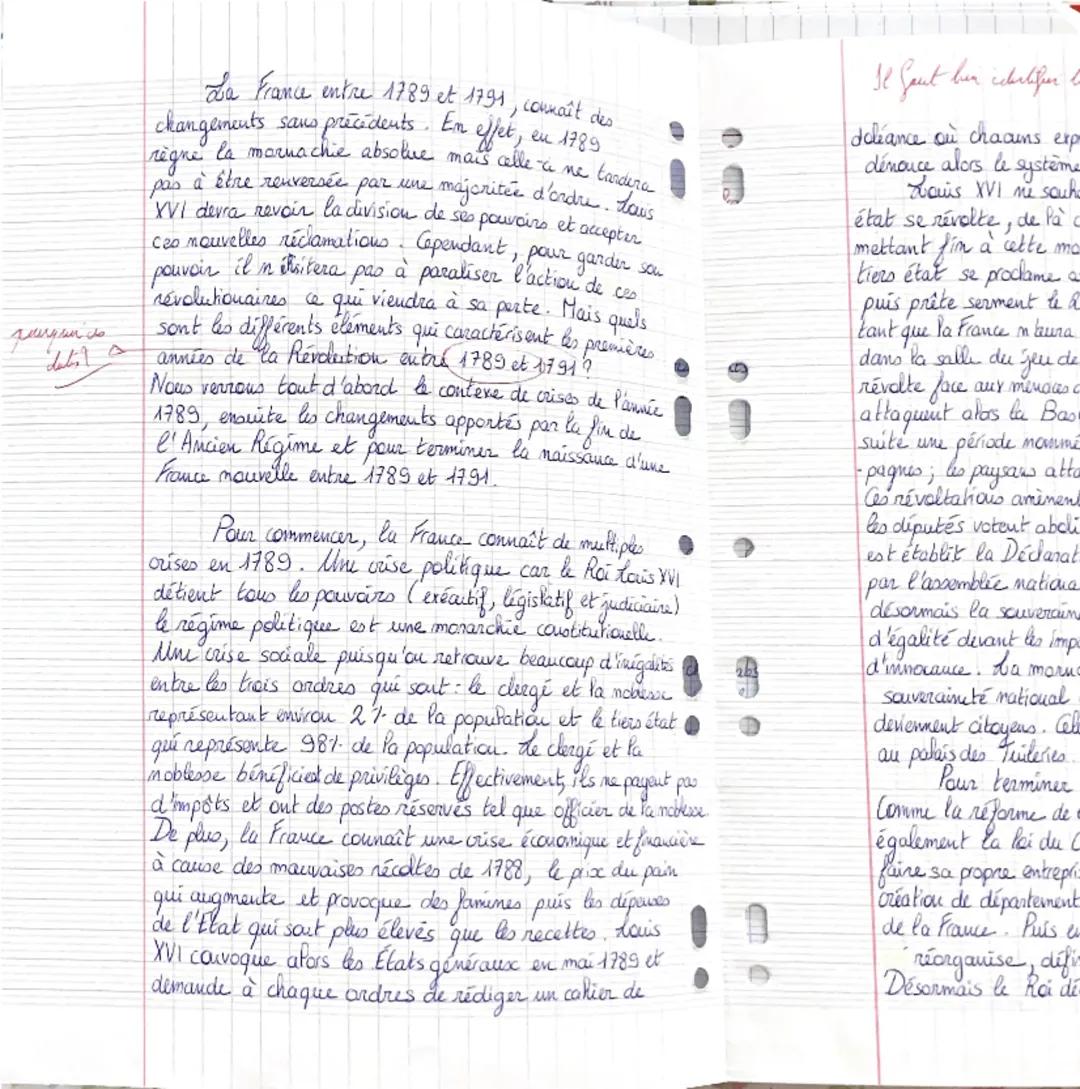 La France entre 1789 et 1791, connaît des
changements sans précédents. En effet, en 1789
règne la monarchie absolue mais celle-ci ne tardera
pas à être renversée par une majoritée d'ordre. Louis
XVI devra revoir la division de ses pouvoirs et accepter
ces nouvelles réclamations. Cependant, pour garder son
pouvoir il n'ésitera pas à paraliser l'action de ces
révolutionaires ce qui viendra à sa perte. Mais quels
sont les différents éléments qui caractérisent les premières
années de la Révolution entre 1789 et 1791 ?
Nous verrons tout d'abord le contexe de crises de l'année
1789, ensuite les changements apportés par la fin de
l'Ancien Régime et pour terminer la naissance d'une
France nouvelle entre 1789 et 1791.
pourquoi ces
dates ?
Pour commencer, la France connaît de multiples
crises en 1789. Une crise politique car le Roi Louis XVI
détient tous les pouvoirs (exécutif, législatif et judiciaire)
le régime politique est une monarchie constitutionelle.
Une crise sociale puisqu'on retrouve beaucoup d'inégalités
entre les trois ordres qui sont : le clergé et la noblesse
représentant environ 2% de la population et le tiers état
qui représente 98% de la population. Le clergé et la
noblesse bénéficient de privilèges. Effectivement, ils ne payent pas
d'impôts et ont des postes réservés tel que officier de la noblesse.
De plus, la France connaît une crise économique et financière
à cause des mauvaises récoltes de 1788, le prix du pain
qui augmente et provoque des famines puis les dépenses
de l'État qui sont plus élevés que les recettes. Louis
XVI convoque alors les États généraux en mai 1789 et
demande à chaque ordres de rédiger un cahier de
Il faut bien identifier
doléance où chacuns
dénonce alors le système
Louis XVI ne
état se révolte, de là
mettant fin à cette
tiers état se proclame
puis prête serment le
tant que la France n'aura
dans la salle du jeu de
révolte face aux menaces
attaquent alors la
suite une période
-pagnes ; les paysans
Ces révoltations amènent
les députés votent
est établit la
par l'assemblée
désormais la
d'égalité devant les
d'innocance. La
souveraineté national
deviennent citoyens.
au palais des Tuileries.
Pour terminer
Comme la réforme de
également la loi du
faire sa propre
création de département
de la France. Puis
réorganise,
Désormais le Roi